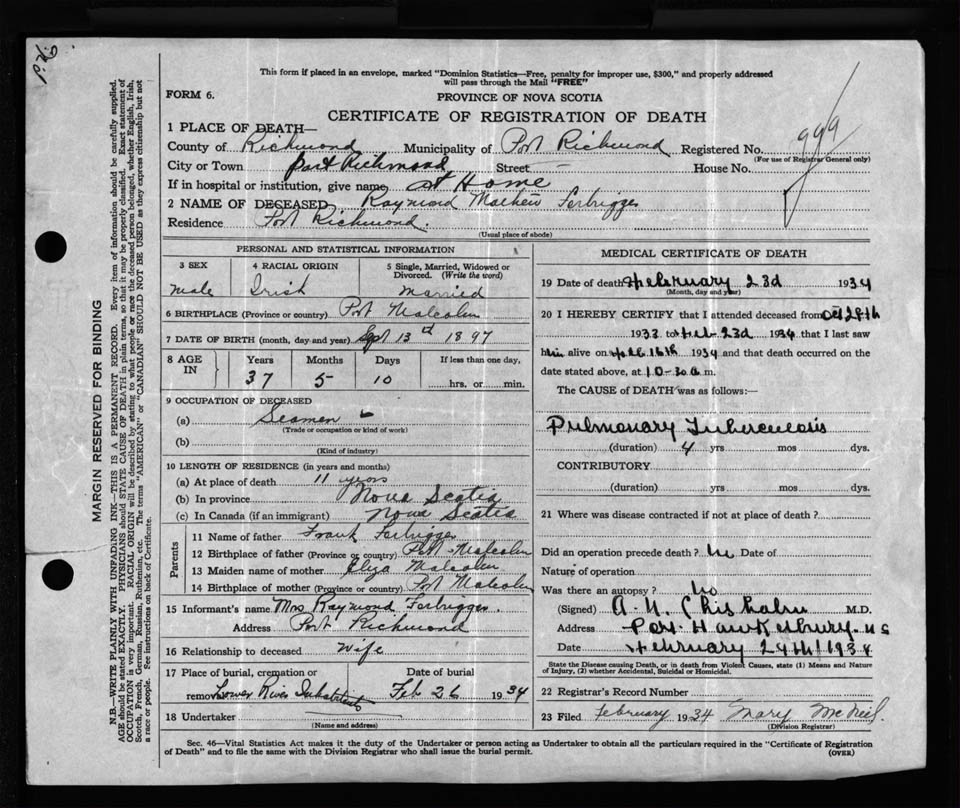 This form if placed in an envelope, marked "Dominion Statistics—Free, penalty for improper use, $300," and properly addressed
will pass through the Mail "FREE"
FORM 6.
PROVINCE OF NOVA SCOTIA
CERTIFICATE OF REGISTRATION OF DEATH
999
1 PLACE OF DEATH—
County of Richmond Municipality of Port Richmond Registered No.
(For use of Registrar General only)
City or Town Port Richmond Street House No.
If in hospital or institution, give name at Home
2 NAME OF DECEASED Raymond Mathew Forbrigges
Residence Port Richmond.
(Usual place of abode)
PERSONAL AND STATISTICAL INFORMATION
3 SEX
male
4 RACIAL ORIGIN
Irish
5 Single, Married, Widowed or
Divorced. (Write the word)
Married
6 BIRTHPLACE (Province or country) Port Malcolm
7 DATE OF BIRTH (month, day and year) Sept 13 1897
8 AGE IN
Years Months Days If less than one day,
37 5 10 hrs. or min.
9 OCCUPATION OF DECEASED
(a) Seamen
(Trade or occupation or kind of work)
(b)
(Kind of industry)
10 LENGTH OF RESIDENCE (in years and months)
(a) At place of death 11 years
(b) In province Nova Scotia
(c) In Canada (if an immigrant) Nova Scotia
Parents
11 Name of father Frank Forbrigges
12 Birthplace of father (Province or country) Port Malcolm
13 Maiden name of mother Eliza Malcolm
14 Birthplace of mother (Province or country) Port Malcolm
15 Informant's name Mrs Raymond Forbrigges.
Address Port Richmond
16 Relationship to deceased wife
17 Place of burial, cremation or Date of burial
removal Lower River Inhabitants Feb 26 1934
18 Undertaker
(Name and address)
MEDICAL CERTIFICATE OF DEATH
19 Date of death February 23d 1934
(Month, day and year)
20 I HEREBY CERTIFY that I attended deceased from Oct 28th
1933 to Feb 23d 1934 that I last saw
him alive on Feb 16th 1934 and that death occurred on the
date stated above, at 10-30 a.m.
The CAUSE OF DEATH was as follows:—
Pulmonary Tuberculosis
(duration) 4 yrs mos dys.
CONTRIBUTORY
(duration) yrs mos dys.
21 Where was disease contracted if not at place of death?
Did an operation precede death? no Date of
Nature of operation
Was there an autopsy? no
(Signed) A. N. Chisholm M.D.
Address Port Hawkesbury N S
Date February 24th 1934
State the Disease causing Death, or in death from Violent Causes, state (1) Means and Nature
of Injury, (2) whether Accidental, Suicidal or Homicidal.
22 Registrar's Record Number
23 Filed February 1934 Mary McNeil.
(Division Registrar)
Sec. 46—Vital Statistics Act makes it the duty of the Undertaker or person acting as Undertaker to obtain all the particulars required in the "Certificate of Registration
of Death" and to file the same with the Division Registrar who shall issue the burial permit.
(OVER)
MARGIN RESERVED FOR BINDING
N.B.—WRITE PLAINLY WITH UNFADING INK—THIS IS A PERMANENT RECORD. Every item of information should be carefully supplied.
AGE should be stated EXACTLY. PHYSICIANS should STATE CAUSE OF DEATH in plain terms, so that it may be properly classified. Exact statement of
OCCUPATION is very important. RACIAL ORIGIN will be described by stating to what people or race the deceased person belonged, whether English, Irish,
Scotch, French, German, Russian, Ruthenian, etc. The terms "AMERICAN" or "CANADIAN" SHOULD NOT BE USED as they express citizenship but not
a race or people. See instructions on back of Certificate.